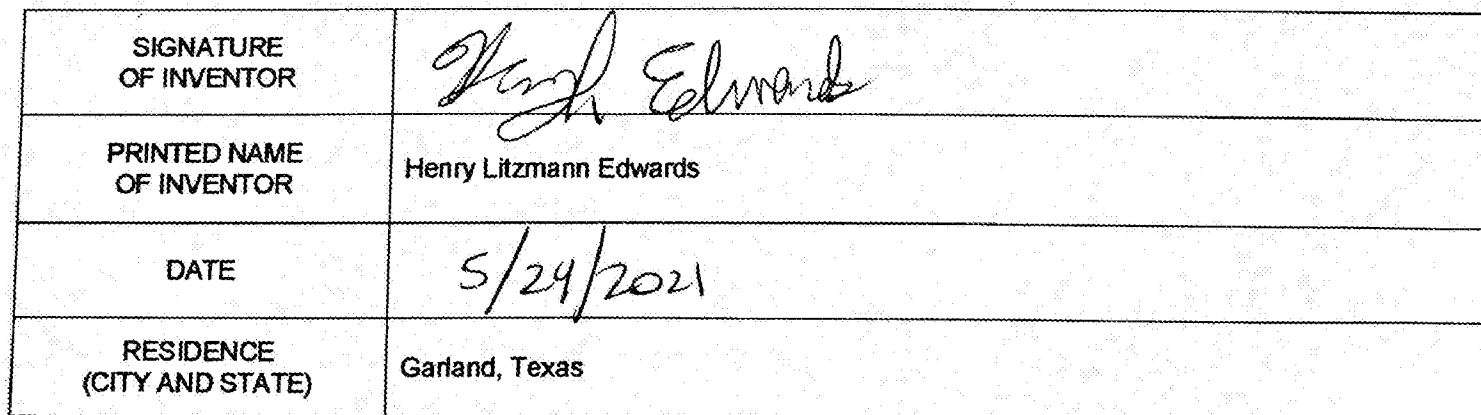 SIGNATURE
OF INVENTOR
Edwards
PRINTED NAME
OF INVENTOR
Henry Litzmann Edwards
DATE
5/24/2021
RESIDENCE
(CITY AND STATE)
Garland, Texas